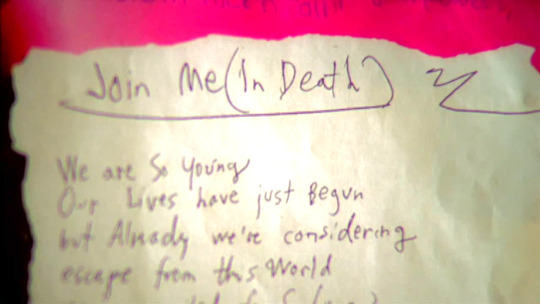 Join Me (In Death)
We are So Young
Our Lives have just Begun
but Already we're considering
escape from this World